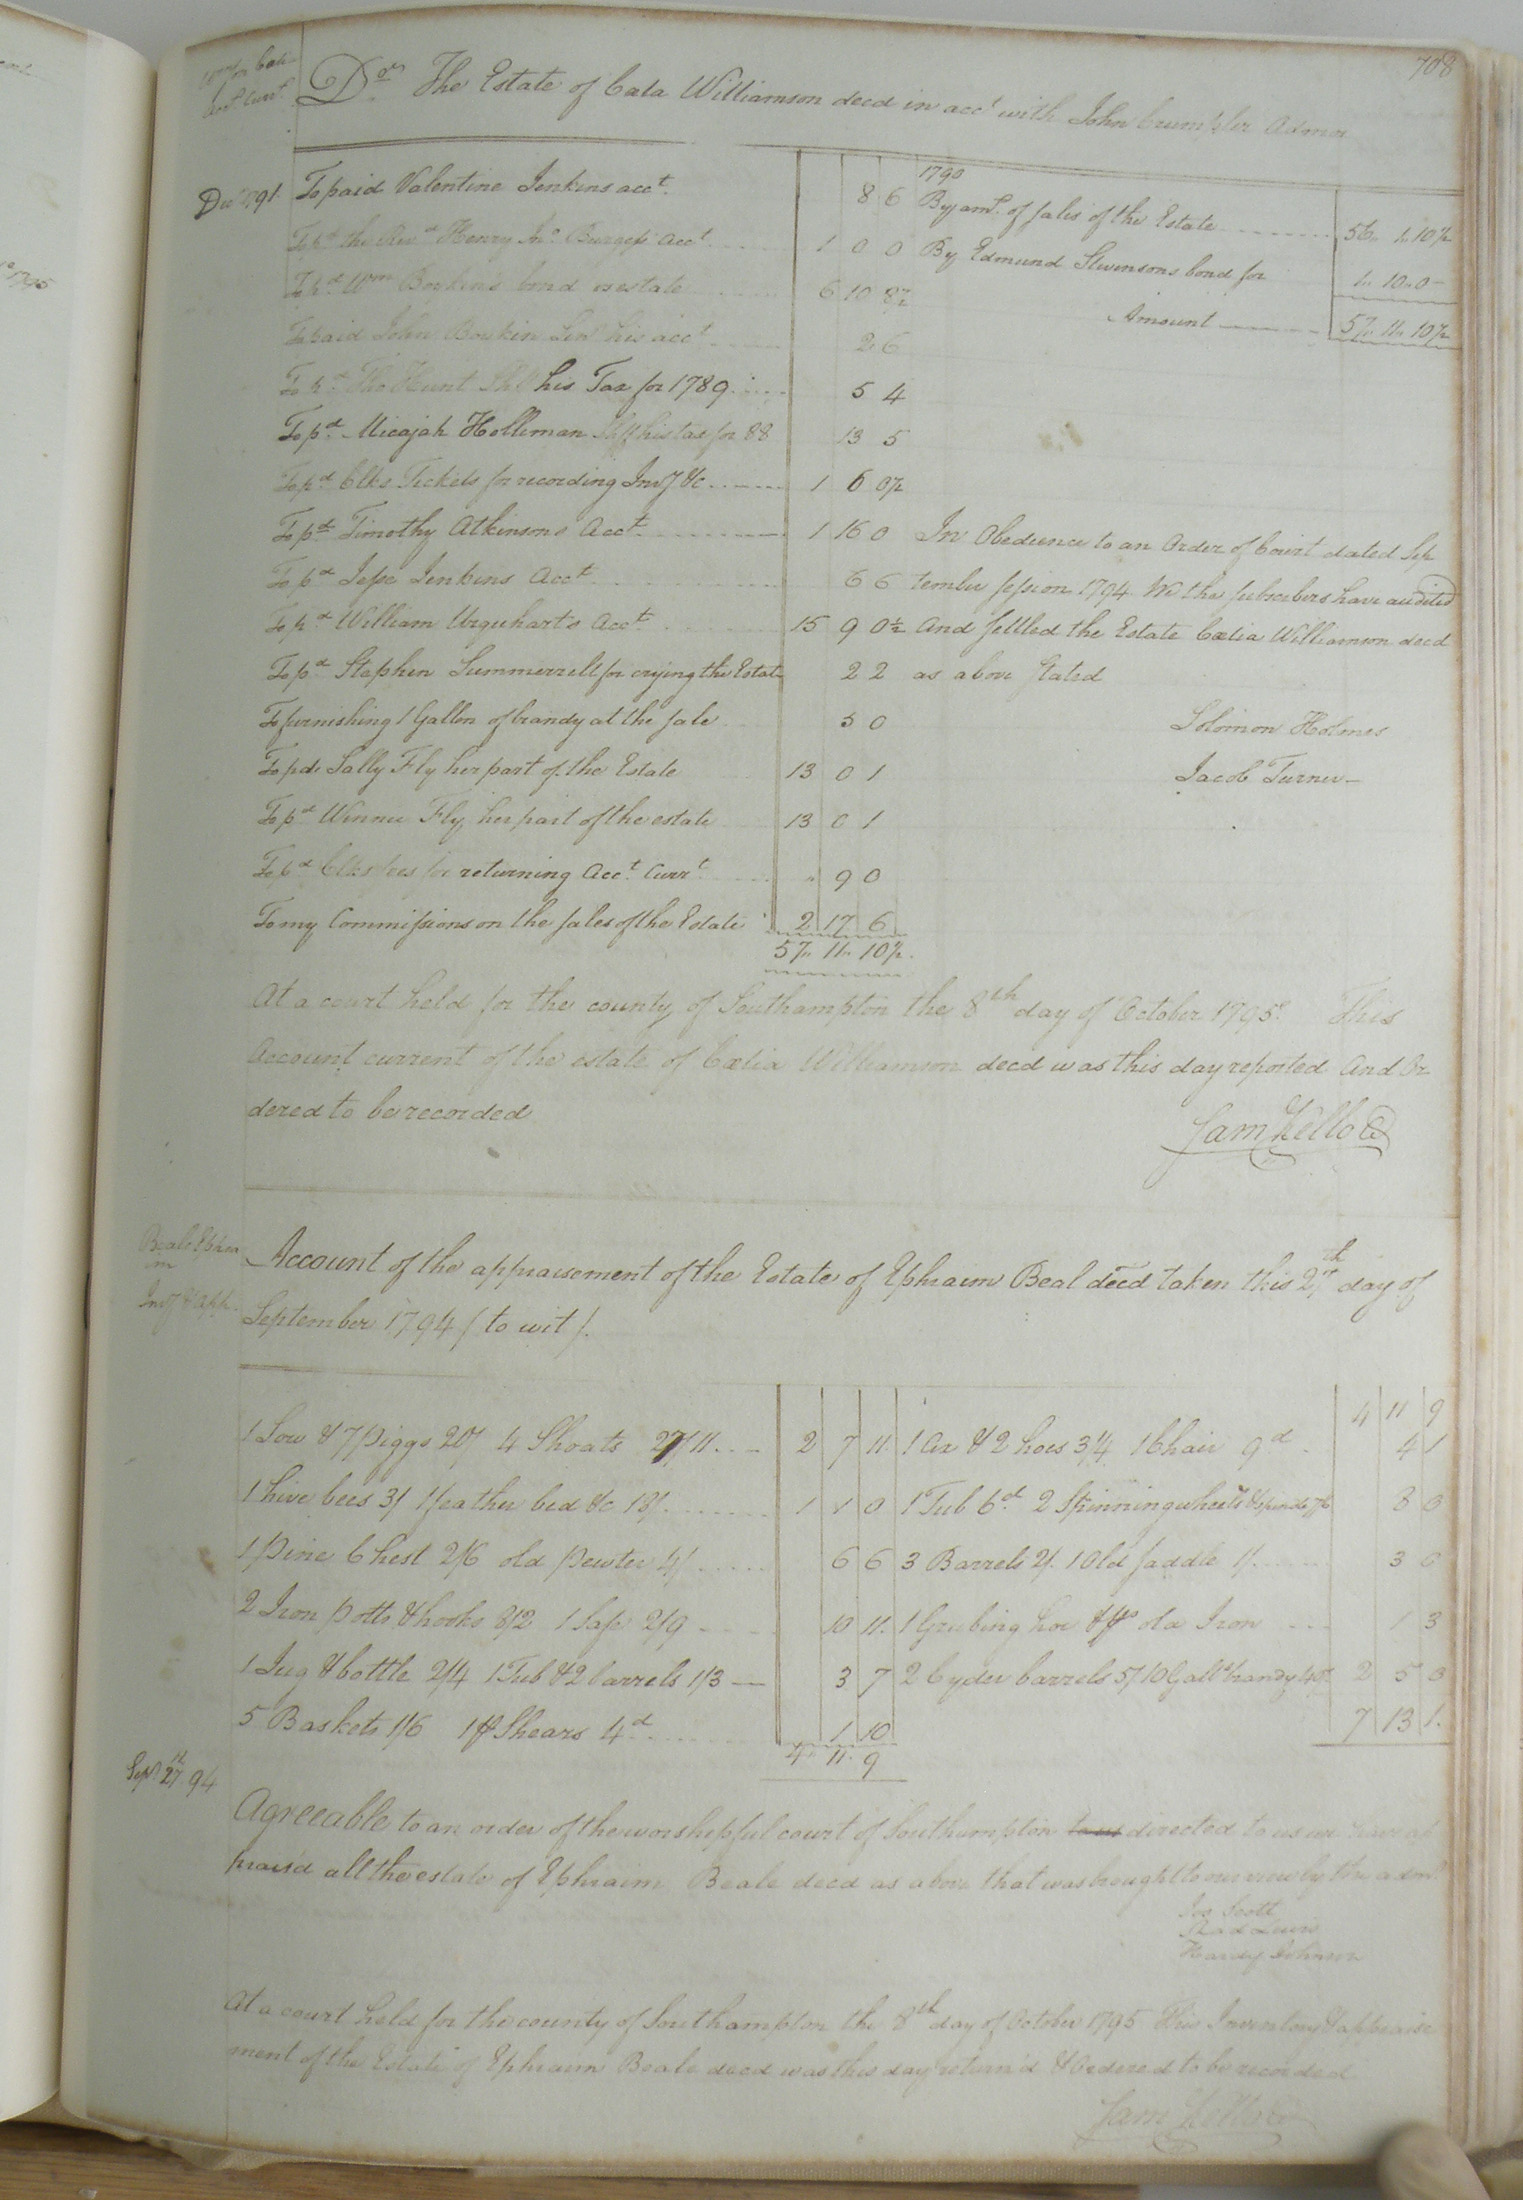 708
Acct Currt
Dr. The Estate of Cala Williamson decd in acct with John Crumpler Admor
Decr 1791 To paid Valentine Jenkins acct. 8 6
To pd the Revd Henry Jno Burgess Acct 1 0 0
To pd Wm Boykin's bond 6 10 8½
To paid John Boykin his acct 2 6
To pd Tho Hunt Shff his Tax for 1789 5 4
To pd Micajah Holleman Shff his tax for 88 13 5
To pd Clks Tickets for recording Invy &c 1 6 0½
To pd Timothy Atkinsons Acct 1 16 0
To pd Jesse Jenkins Acct 6 6
To pd William Urquharts Acct 15 9 0½
To pd Stephen Summerrell for crying the Estate 2 2
To furnishing 1 Gallon of brandy at the sale 5 0
To pd Sally Fly her part of the Estate 13 0 1
To pd Winnee Fly her part of the estate 13 0 1
To pd Clks fees for returning Acct Currt 9 0
To my Commissions on the sales of the Estate 2 17 6
57 11 10½
1790
By amt. of sales of the Estate 56 1 10½
By Edmund Stevensons bond for 1 10 0
Amount 57 11 10½
In Obedience to an Order of Court dated Sep
tember session 1794 We the subscribers have audited
And settled the Estate Cœlia Williamson decd
as above stated
Solomon Holmes
Jacob Turner
At a court held for the county of Southampton the 8th day of October 1795 This
Account current of the estate of Cœlia Williamson decd was this day reported And Or
dered to be recorded
Sam Kello C
Beale Ephra
im
Invy & App
Account of the appraisement of the Estate of Ephraim Beal decd taken this 27th day of
September 1794 (to wit).
1 Sow & 7 Piggs 20/ 4 Shoats 27/11 2 7 11
1 hive bees 3/ 1 feather bed &c 18/ 1 1 0
1 Pine Chest 2/6 old Pewter 4/ 6 6
2 Iron Potts & hooks 8/2 1 Safe 2/9 10 11
1 Jug & bottle 2/4 1 Tub & 2 barrels 1/3 3 7
5 Baskets 1/6 1 pr Shears 4d 1 10
4 11 9
4 11 9
1 Ax & 2 hoes 3/4 1 Chair 9d 4 1
1 Tub 6d 2 Spinning wheels & spindle 7/6 8 0
3 Barrels 2/ 1 Old saddle 1/ 3 0
1 Grubing hoe & ps old Iron 1 3
2 Cyder barrels 5/ 10 Galls brandy 40/ 2 5 0
7 13 1
Sept 27th 94
Agreeable to an order of the worshipful court of Southampton to us directed to us we have ap
praisd all the estate of Ephraim Beale decd as above that was brought to our view by the admr
Jos Scott
Lewis
Hardy Johnson
At a court held for the county of Southampton the 8th day of October 1795 This Inventory & appraise
ment of the Estate of Ephraim Beale decd was this day return'd & Ordered to be recorded
Sam Kello C